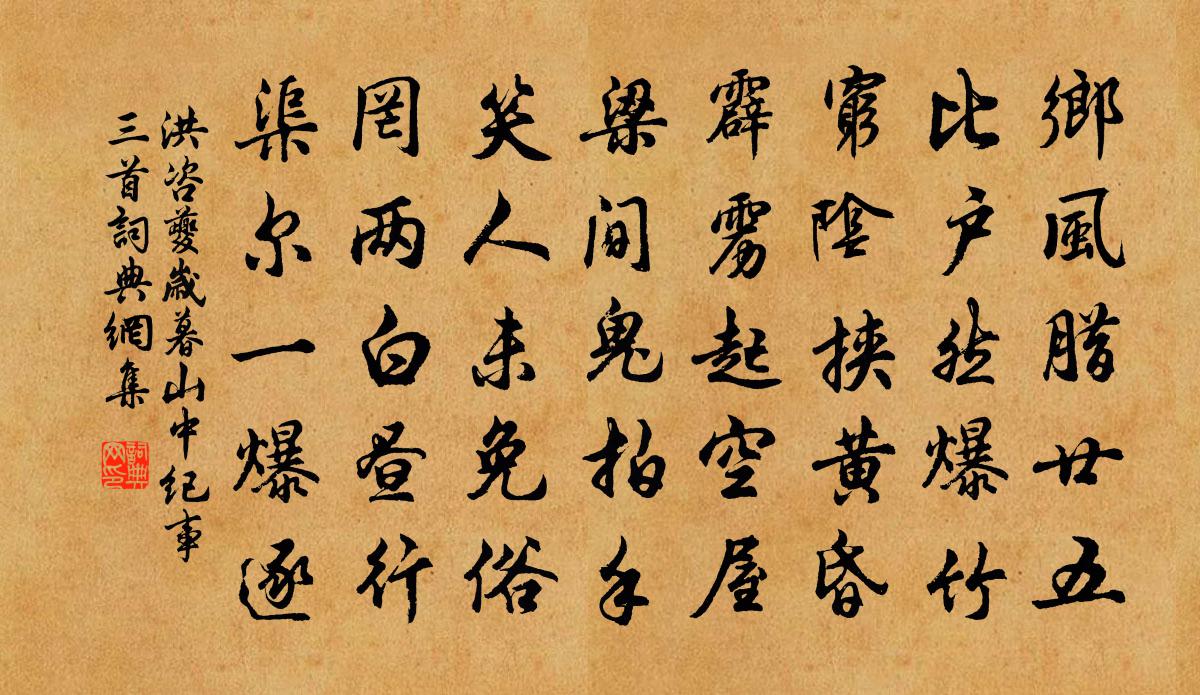 鄉風腊廿五
比户然爆竹
窮陰挾黄昏
霹雳起空屋
梁間鬼拍手
笑人未免俗
罔两白昼行
渠尔一爆逐
洪咨夔歲暮山中紀事
三首詞典網集
詞典网印